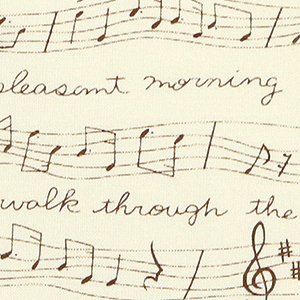 pleasant morning
walk through the